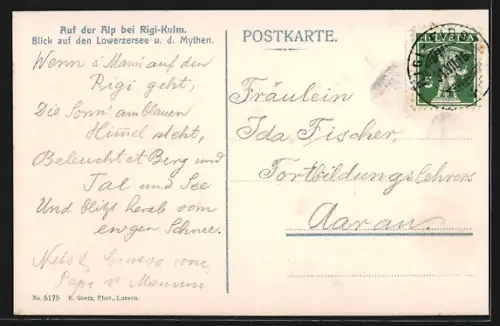 Auf der Alp bei Rigi-Kulm.
Blick auf den Lowerzersee u. d. Mythen.
Wenn s'Mami auf den
Rigi geht,
Die Sonn' am blauen
Himmel steht,
Beleuchtet Berg und
Tal und See
Und blitzt herab vom
ew'gen Schnee.
Nebst Gruss von
Papa u. Mammi
No. 5175 E. Goetz, Phot., Luzern.
POSTKARTE.
HELVETIA
Fräulein
Ida Fischer,
Fortbildungslehrers
Aarau.